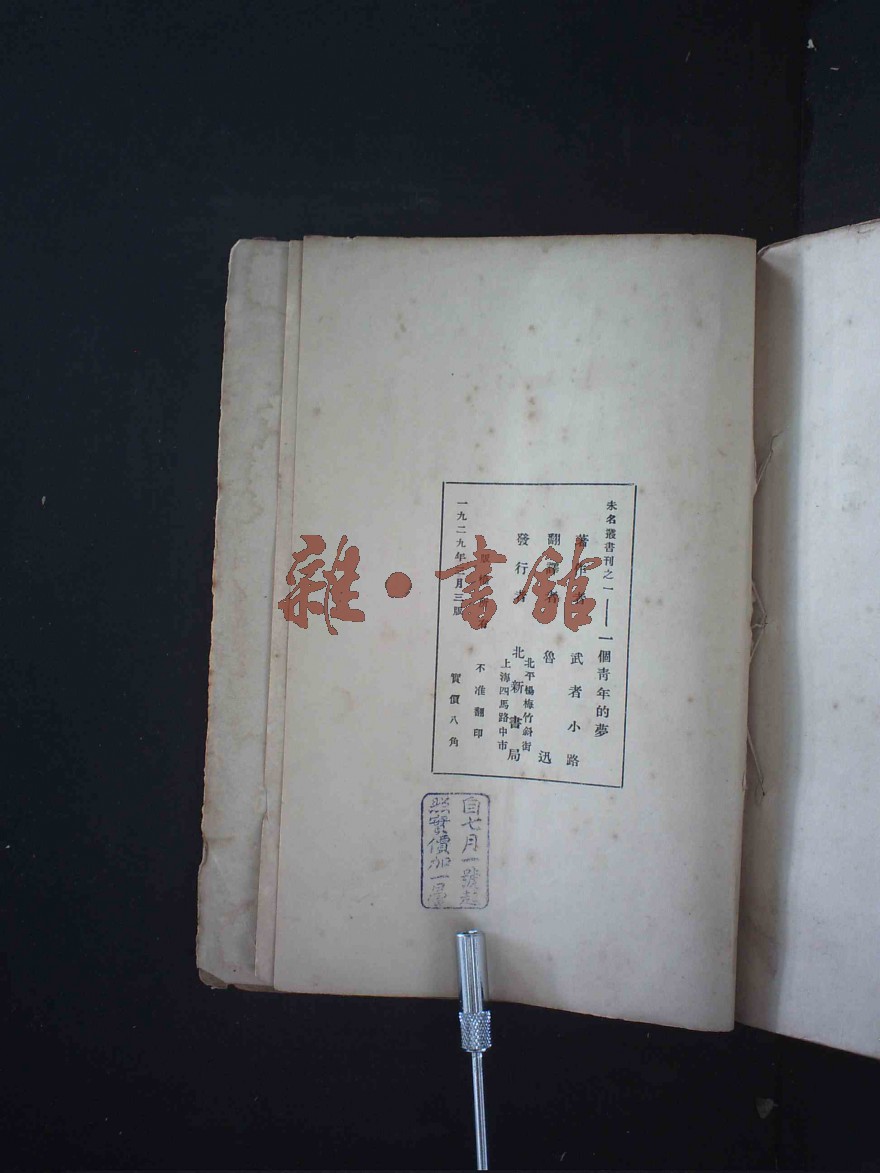 未名叢書刊之一——一個靑年的夢
著作者 武者小路
翻譯者 魯迅
發行者 北新書局
北平楊梅竹斜街
上海四馬路中市
不准翻印
一九二九年 月三版
實價八角
自七月一號起
照實價加一量
雜·書館